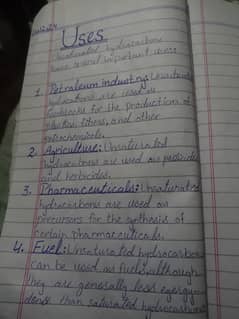 Uses
Unsaturated hydrocarbons
have several important uses:
1. Petroleum industry: Unsaturated
hydrocarbons are used as
feedstocks for the production of
plastics, fibers, and other
petrochemicals.
2. Agriculture: Unsaturated
hydrocarbons are used as pesticides
and herbicides.
3. Pharmaceuticals: Unsaturated
hydrocarbons are used as
precursors for the synthesis of
certain pharmaceuticals.
4. Fuel: Unsaturated hydrocarbons
can be used as fuels, although
they are generally less energy
dense than saturated hydrocarbons